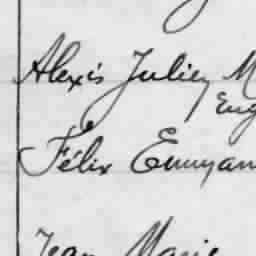 Alexis Julien M
Eug
Félix Emman
Jean Marie